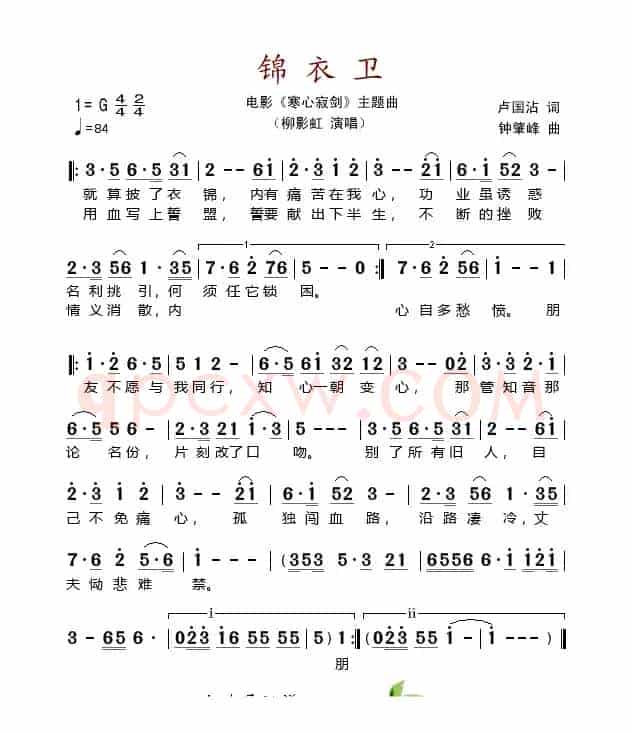 锦衣卫
1= G 4/4 2/4
电影《寒心寂剑》主题曲
卢国沾 词
♩=84
(柳影虹 演唱)
钟肇峰 曲
‖: 3·5 6·5 31 | 2 - - 61 | 2·3 1 2 2 1 | 6·1 52 3 - |
就算披了衣锦，内有痛苦在我心，功业虽诱惑
用血写上誓盟，誓要献出下半生，不断的挫败
1
2
2·3 56 1·35 | 7·6 2 76 | 5 - - 0 :‖ 7·6 2 56 | 1 - - 1 |
名利挑引，何须任它锁困。
情义消散，内心自多愁愤。朋
‖: 1·2 6·5 | 5 1 2 - | 6·5 61 32 12 | 3 - - 02 | 3·2 3·5 |
友不愿与我同行，知心一朝变心，那管知音那
qpcxw.COM
6·5 5 6 - | 2·3 21 1·3 | 5 - - - | 3·5 6·5 31 | 2 - - 61 |
论名份，片刻改了口吻。别了所有旧人，目
2·3 1 2 | 3 - - 21 | 6·1 52 3 - | 2·3 56 1·35 |
己不免痛心，孤独闯血路，沿路凄冷，丈
7·6 2 5·6 | 1 - - - | (353 5·3 21 | 6556 6·1 121 |
夫恸悲难禁。
i
ii
3 - 65 6· | 023 16 55 55 | 5) 1 :‖ (023 16 55 55 1 - | 1 - ) ‖
朋